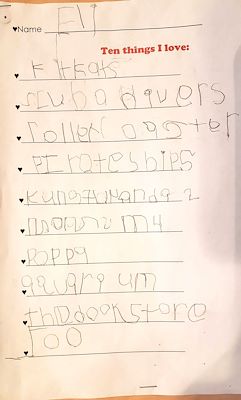 ♥Name Eli
Ten things I love:
♥ kitkats
♥ scuba divers
♥ rollen coaster
♥ PIrateships
♥ kungfupanda 2
♥
♥ Poppy
♥ aqwarium
♥ thebookstore
♥ zoo